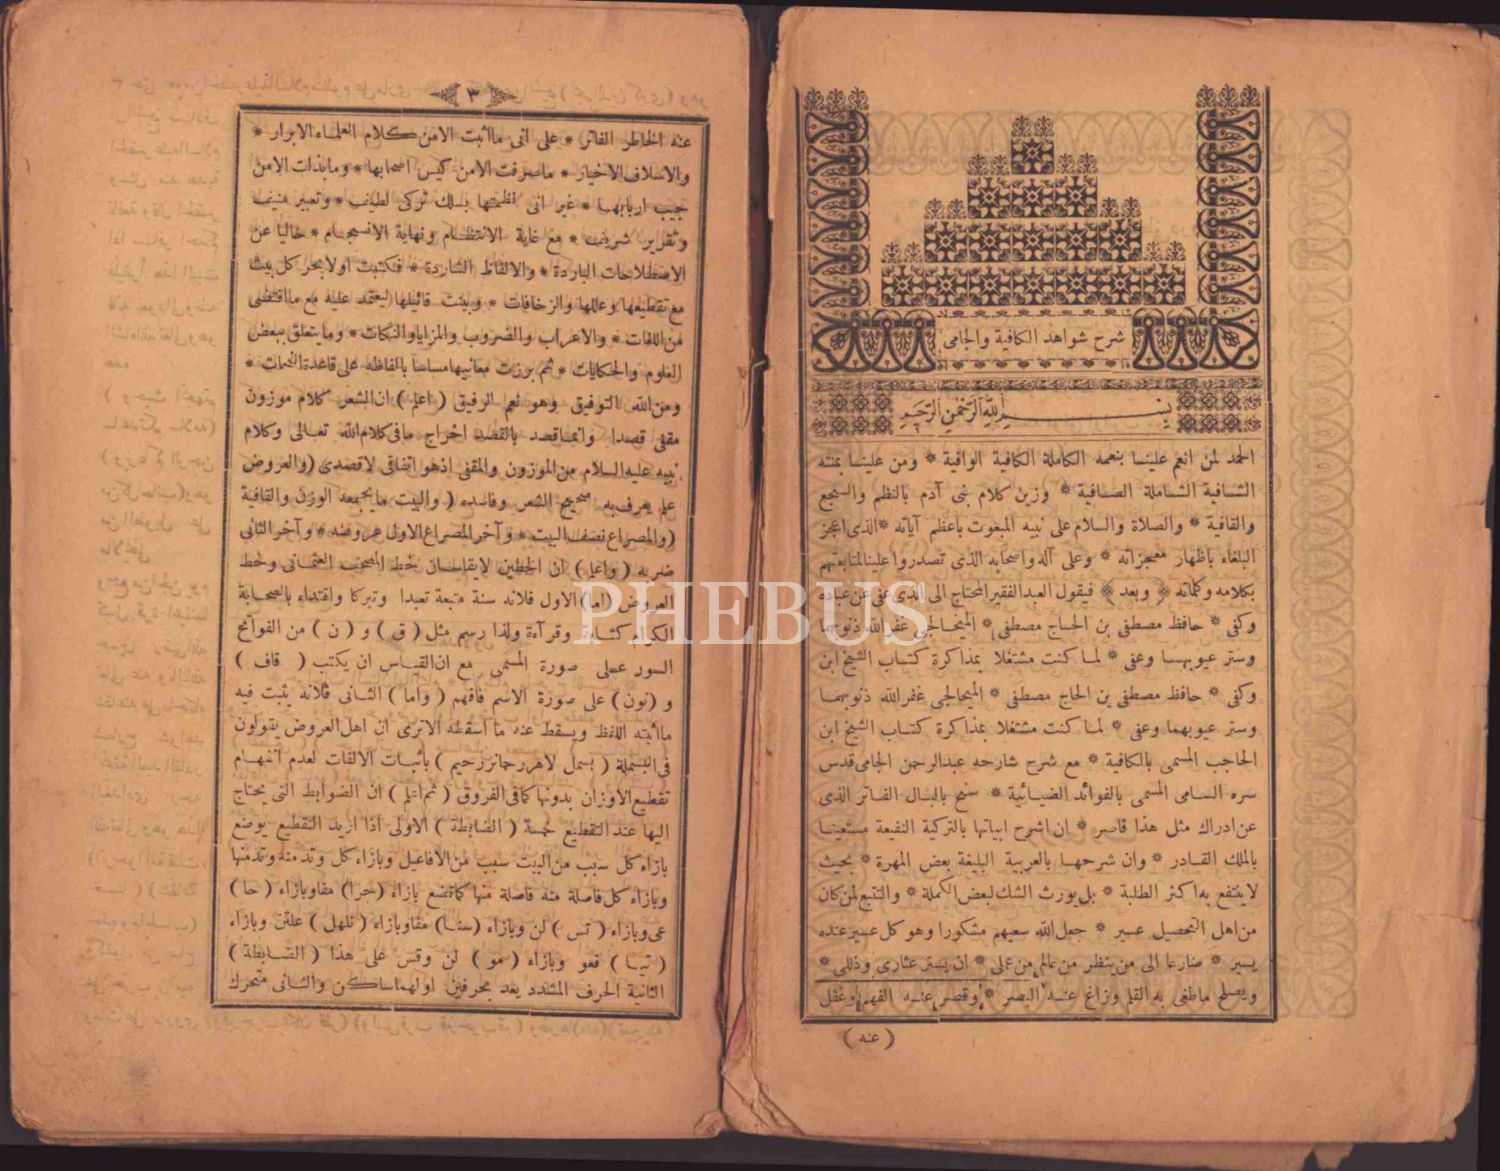 شرح شواهد الكافية والجامى
بسم الله الرحمن الرحيم
الحمد لمن انعم علينا بنعمه الكاملة الكافية الوافية * ومن علينا بمنته
الشافية الشاملة الصافية * وزين كلام بنى آدم بالنظم والسجع
والقافية * والصلاة والسلام على نبيه المبعوث باعظم آياته * الذى اعجز
البلغاء باظهار معجزاته * وعلى آله واصحابه الذى تصدروا علينا لمتابعتهم
بكلامه وكماته ﴿ وبعد ﴾ فيقول العبد الفقير المحتاج الى الذى عفى عن عباده
وكفى * حافظ مصطفى بن الحاج مصطفى * الميحالجى غفر الله ذنوبهما
وستر عيوبهما وعفى * لما كنت مشتغلا بمذاكرة كتاب الشيخ ابن
وكفى * حافظ مصطفى بن الحاج مصطفى * الميحالجى غفر الله ذنوبهما
وستر عيوبهما وعفى * لما كنت مشتغلا بمذاكرة كتاب الشيخ ابن
الحاجب المسمى بالكافية * مع شرح شارحه عبد الرحمن الجامى قدس
سره السامى المسمى بالفوائد الضيائية * سنح بالبال الفاتر الذى
عن ادراك مثل هذا قاصر * ان اشرح ابياتها بالتركية النفيعة مستعينا
بالملك القادر * وان شرحها بالعربية البليغة بعض المهرة * بحيث
لا ينتفع به اكثر الطلبة * بل يورث الشك لبعض الكملة * والتتبع لمن كان
من اهل التحصيل عسير * جعل الله سعيهم مشكورا وهو كل عسير عنده
يسير * ضارعا الى من ينظر من عالم من على * ان يستر عثارى وذللى *
ويصلح ماطغى به القلم وزاغ عنه البصر * وقصر عنه الفهم وغفل
( عنه )
٣
عنه الخاطر الفاتر * على انى ما اثبت الا من كلام العلماء الابرار *
والاسلاف الاخيار * ماصرفت الا من كيس اصحابها * ومابذات الا من
جيب اربابها * غير انى نظمتها بسلك تركى لطيف * وتعبير منيف
وتقرير شريف * مع غاية الانتظام ونهاية الانسجام * خاليا عن
الاصطلاحات الباردة * والالفاظ الشاردة * فكتبت اولا بحر كل بيت
مع تقطيعها وعللها والزحافات * وبينت قائيلها ليعتمد عليه مع ما اقتضى
من اللغات * والاعراب والضروب والمزايا والنكات * وما يتعلق ببعض
العلوم والحكايات * ثم برزت معانيها مساسا بالفاظه على قاعدة النحات *
ومن الله التوفيق وهو نعم الرفيق ( اعلم ) ان الشعر كلام موزون
مقفى قصدا وانما قصد بالقصد اخراج ما فى كلام الله تعالى وكلام
نبيه عليه السلام من الموزون والمقفى اذ هو اتفاقى لا قصدى ( والعروض
علم يعرف به صحيح الشعر وفاسده ( والبيت ما يجمعه الوزن والقافية
( والمصراع نصف البيت * وآخر المصراع الاول عروضه * وآخر الثانى
ضربه ( واعلم ) ان الخطين لا يقاسان خط المصحف العثمانى وخط
العروض ( اما ) الاول فلانه سنة متبعة تعبدا وتبركا واقتداء بالصحابة
الكرام كتابة وقرآءة ولذا رسم مثل ( ق ) و ( ن ) من الفواتح
السور على صورة المسمى مع ان القياس ان يكتب ( قاف )
و ( نون ) على صورة الاسم فافهم ( واما ) الثانى فلانه يثبت فيه
ما اثبته اللفظ ويسقط عنه ما اسقطه الا ترى ان اهل العروض يقولون
فى البسملة ( بسمل لاهررحمانررحيم ) باثبات الالفات لعدم انفهام
تقطيع الاوزان بدونها كما فى الفروق ( ثم اعلم ) ان الضوابط التى يحتاج
اليها عند التقطيع خمسة ( الضابطة ) الاولى اذا اريد التقطيع يوضع
بازاء كل سبب من البيت سبب من الافاعيل وبازاء كل وتد منه وتد منها
وبازاء كل فاصلة منه فاصلة منها كما تضع بازاء ( جرا ) مفا وبازاء ( حا )
عى وبازاء ( تس ) لن وبازاء ( سنا ) مفا وبازاء ( تلهل ) علتن وبازاء
( تيا ) فعو وبازاء ( مو ) لن وقس على هذا ( الضابطة )
الثانية الحرف المشدد يعد بحرفين اولهما ساكن والثانى متحرك
PHEBUS